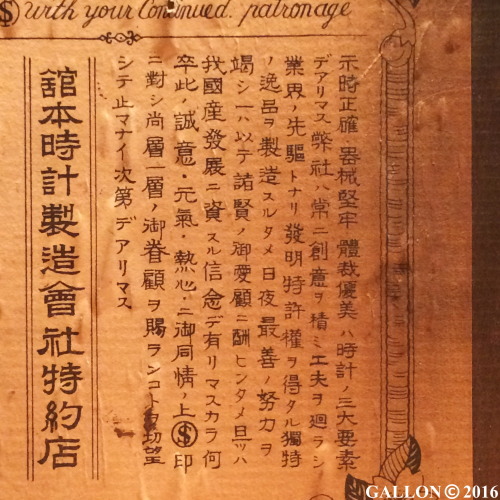 with your Continued. patronage
示時正確 器械堅牢 體裁優美ハ時計ノ三大要素
デアリマス弊社ハ常ニ創意ヲ積ミ工夫ヲ廻ラシ
業界ノ先驅トナリ發明特許權ヲ得タル獨特
ノ逸品ヲ製造スルタメ日夜最善ノ努力ヲ
竭シ一ハ以テ諸賢ノ御愛顧ニ酬ヒンタメ且ツハ
我國産發展ニ資スル信念デ有リマスカラ何
卒此ノ誠意・元氣・熱心ニ御同情ノ上Ⓢ印
ニ對シ尚層一層ノ御眷顧ヲ賜ランコトヲ切望
シテ止マナイ次第デアリマス
舘本時計製造會社特約店
GALLON© 2016